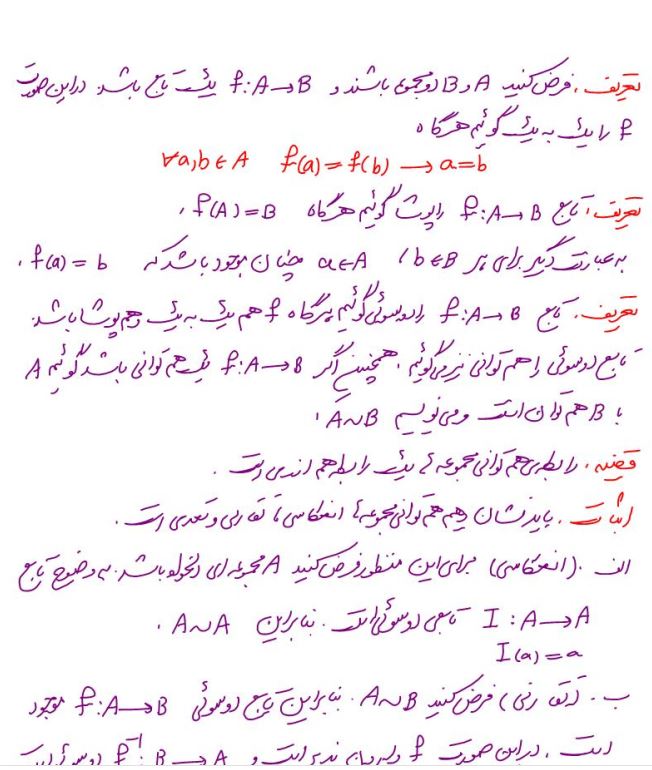 تعریف. فرض کنید A و B دو مجموعه باشند و f: A→B یک تابع باشد. در این صورت
f را یک به یک گوئیم هرگاه
∀a,b∈A f(a)=f(b) → a=b
تعریف. تابع f: A→B را پوشا گوئیم هرگاه f(A)=B.
به عبارت دیگر برای هر b∈B، a∈A چنان موجود باشد که f(a)=b.
تعریف. تابع f: A→B را دوسوئی گوئیم هرگاه f هم یک به یک و هم پوشا باشد.
تابع دوسوئی را هم توانی نیز می گوئیم. همچنین اگر f: A→B یک هم توانی باشد گوئیم A
با B هم توان است و می نویسیم A~B.
قضیه. رابطه ی هم توانی مجموعه ها یک رابطه هم ارزی است.
اثبات. باید نشان دهیم هم توانی مجموعه ها انعکاسی، تقارنی و تعدی است.
الف. (انعکاسی) برای این منظور فرض کنید A مجموعه ای دلخواه باشد. به وضوح تابع
I: A→A تابعی دوسوئی است. بنابراین A~A.
I(a)=a
ب. (تقارنی) فرض کنید A~B. بنابراین تابع دوسوئی f: A→B موجود
است. در این صورت f وارون پذیر است و f⁻¹: B→A دوسوئی است